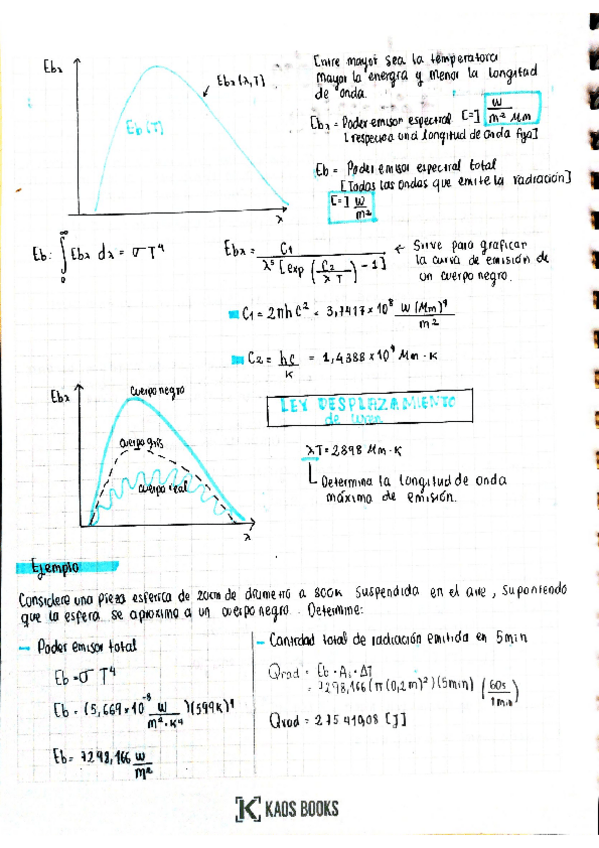 Ebλ
Ebλ(λ,T)
Eb(T)
λ
Entre mayor sea la temperatura
mayor la energía y menor la longitud
de onda.
Ebλ = Poder emisor espectral [=] W/m² Mm
[respecto a una longitud de onda fija]
Eb = Poder emisor espectral total
[Todas las ondas que emite la radiación]
[=] W/m²
Eb: ∫₀^∞ Ebλ dλ = σ T⁴
Ebλ = C1 / λ⁵ [exp (C2 / λ T) - 1]
← Sirve para graficar
la curva de emisión de
un cuerpo negro.
C1 = 2πhc² = 3,7417 × 10⁸ W (Mm)⁴ / m²
C2 = hc / K = 1,4388 × 10⁴ Mm · K
Ebλ
cuerpo negro
cuerpo gris
cuerpo real
λ
LEY DESPLAZAMIENTO
de wien
λT = 2898 Mm · K
Determina la longitud de onda
máxima de emisión.
Ejemplo
Considere una pieza esférica de 20cm de diámetro a 800K suspendida en el aire, suponiendo
que la esfera se aproxima a un cuerpo negro. Determine:
- Poder emisor total
Eb = σ T⁴
Eb = (5,669 × 10⁻⁸ W / m² · K⁴)(599K)⁴
Eb = 7298,166 W / m²
- Cantidad total de radiación emitida en 5min
Qrad = Eb · As · ΔT
= 7298,166 (π(0,2m)²)(5min) (60s / 1min)
Qrad = 275 410,08 [J]
[K] KAOS BOOKS